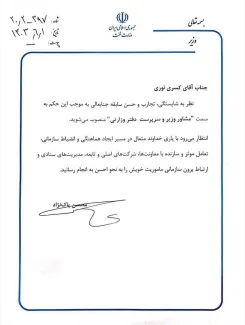 بسمه تعالی
جمهوری اسلامی ایران
وزارت نفت
وزیر
جناب آقای کسری نوری
نظر به شایستگی، تجارب و حسن سابقه جنابعالی به موجب این حکم به
سمت "مشاور وزیر و سرپرست دفتر وزارتی" منصوب می‌شوید.
انتظار می‌رود با یاری خداوند متعال در مسیر ایجاد هماهنگی و انضباط سازمانی،
تعامل موثر و سازنده با معاونت‌ها، شرکت‌های اصلی و تابعه، مدیریت‌های ستادی و
ارتباط برون سازمانی ماموریت خویش را به نحو احسن به انجام رسانید.
محسن پاک‌نژاد